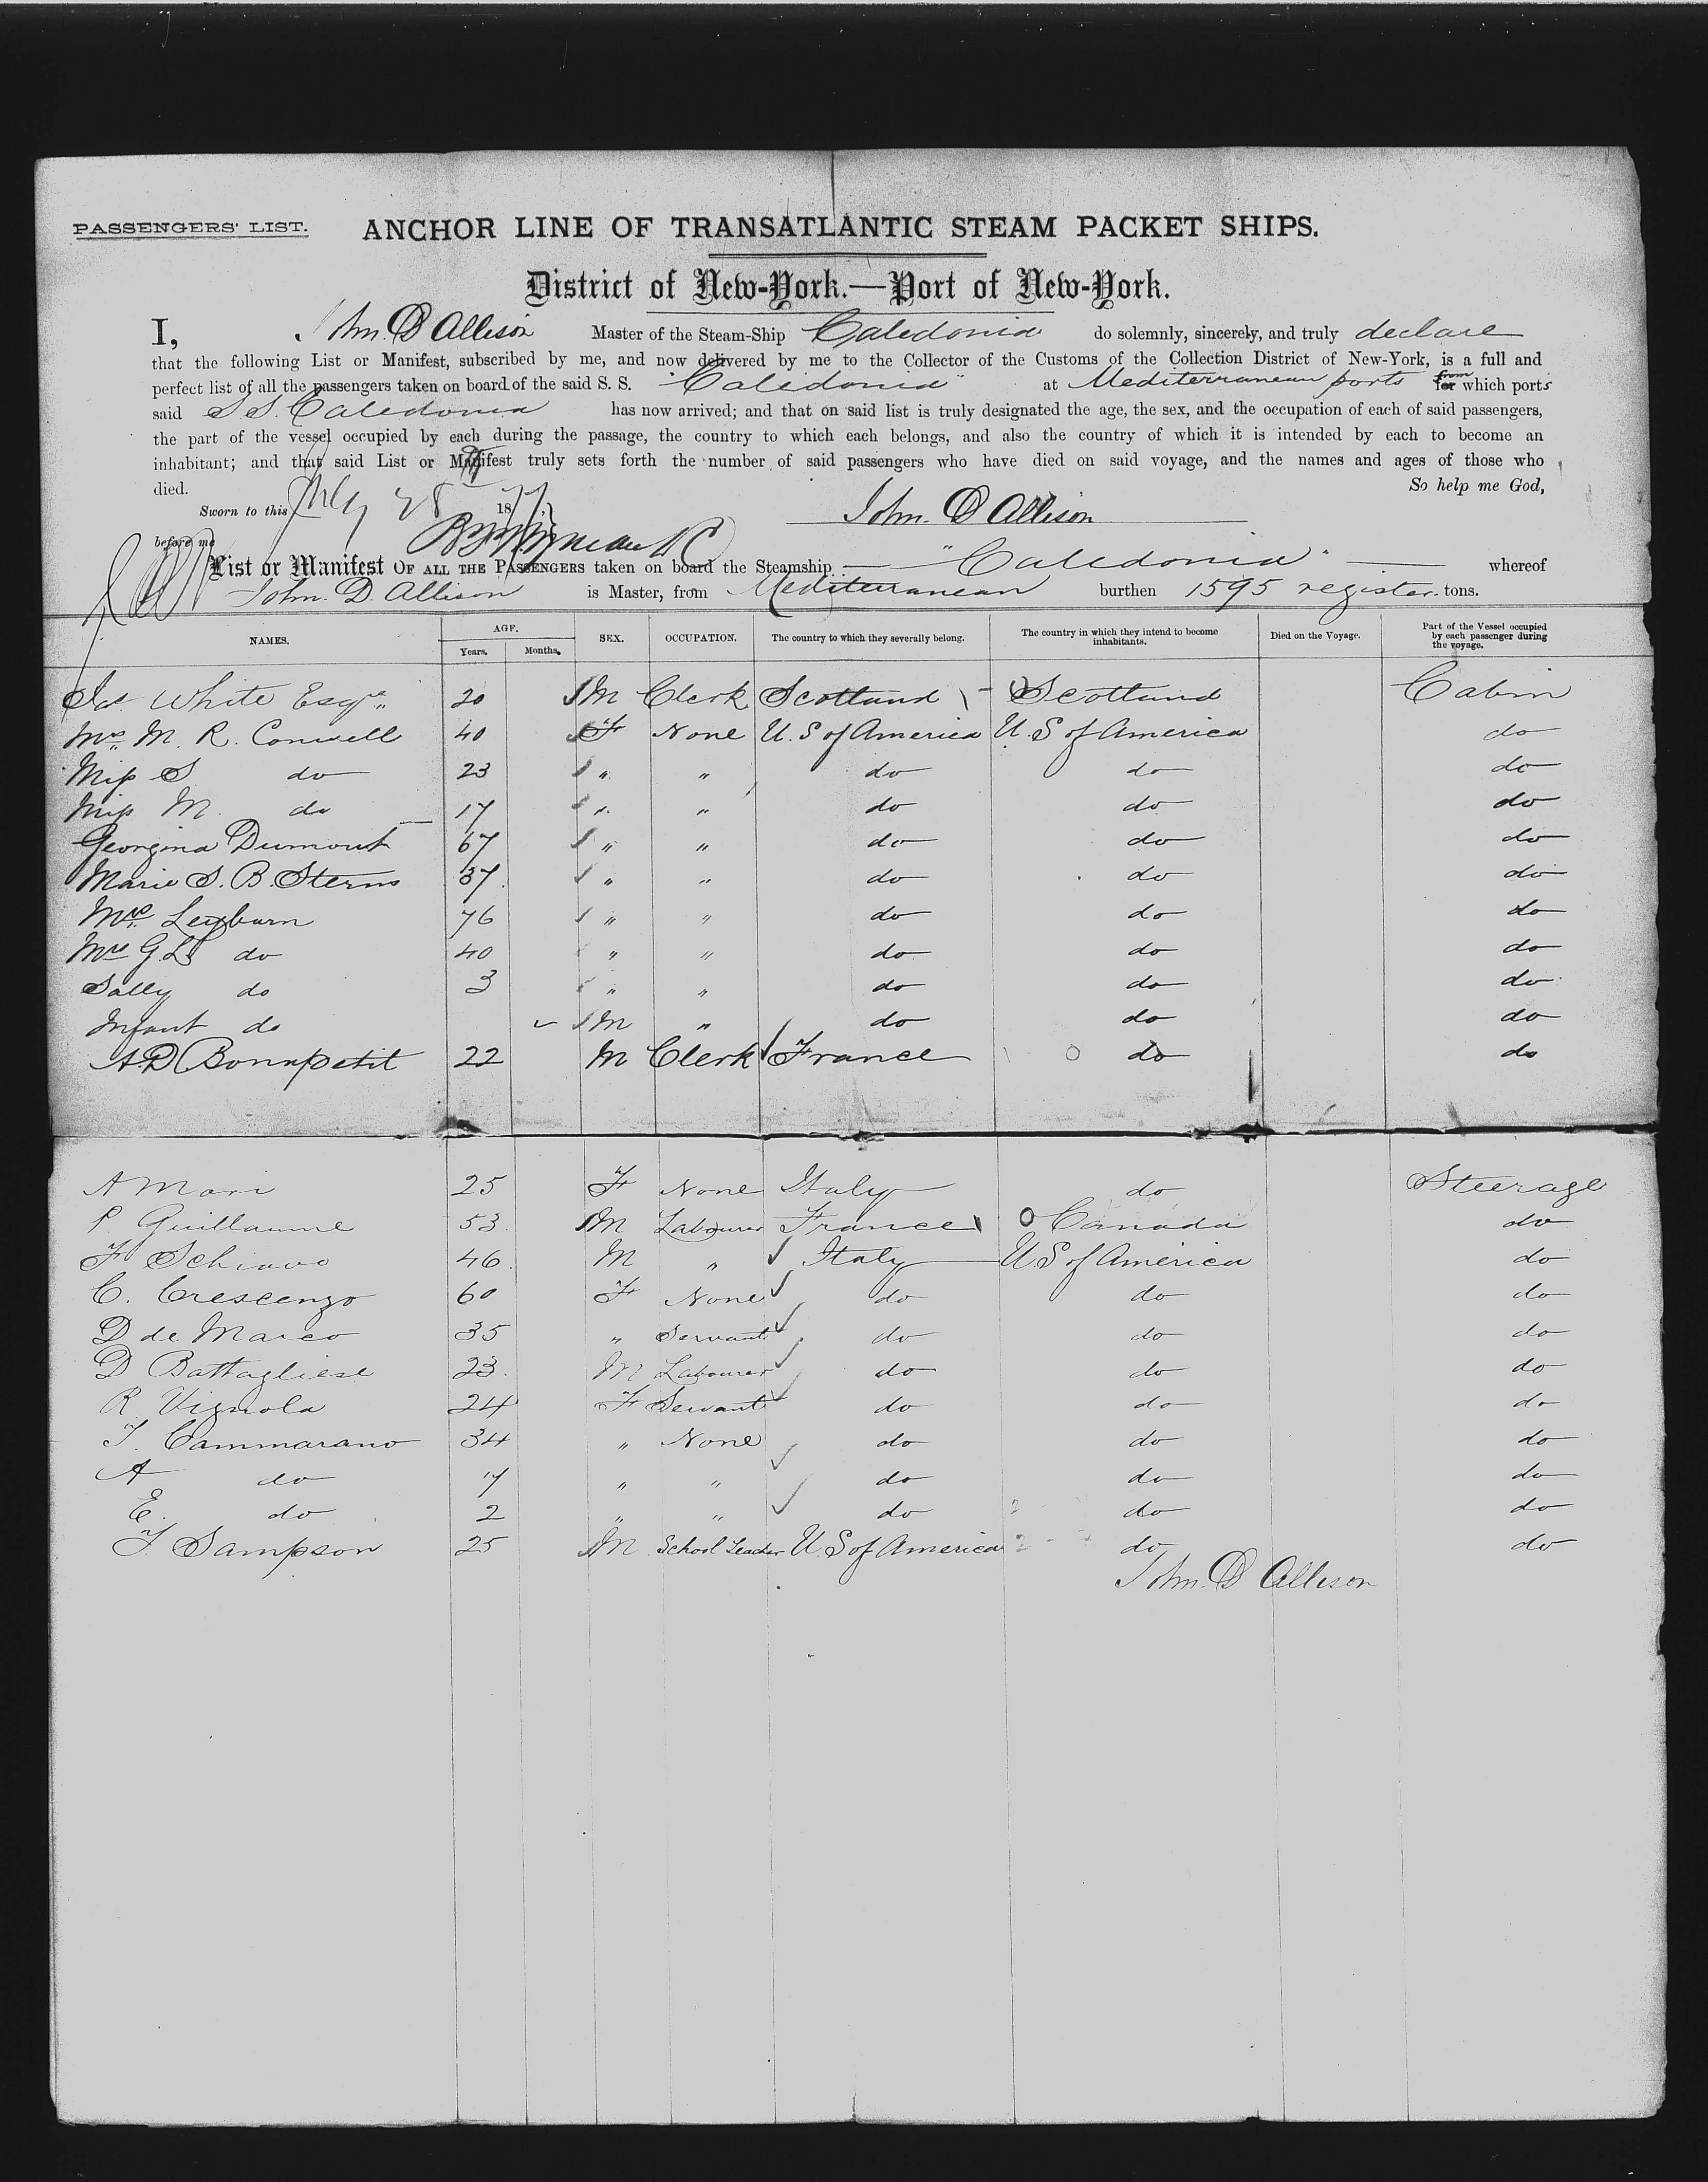 PASSENGERS' LIST. ANCHOR LINE OF TRANSATLANTIC STEAM PACKET SHIPS.
District of New-York.—Port of New-York.
I, John. D Allison Master of the Steam-Ship Caledonia do solemnly, sincerely, and truly declare
that the following List or Manifest, subscribed by me, and now delivered by me to the Collector of the Customs of the Collection District of New-York, is a full and
perfect list of all the passengers taken on board of the said S. S. "Caledonia" at Mediterranean ports from which ports
said S S. Caledonia has now arrived; and that on said list is truly designated the age, the sex, and the occupation of each of said passengers,
the part of the vessel occupied by each during the passage, the country to which each belongs, and also the country of which it is intended by each to become an
inhabitant; and that said List or Manifest truly sets forth the number of said passengers who have died on said voyage, and the names and ages of those who
died. So help me God,
Sworn to this July 28 1877 John. D Allison
before me
List or Manifest OF ALL THE PASSENGERS taken on board the Steamship "Caledonia" whereof
John. D. Allison is Master, from Mediterranean burthen 1595 register tons.
NAMES. AGE. Years. Months. SEX. OCCUPATION. The country to which they severally belong. The country in which they intend to become inhabitants. Died on the Voyage. Part of the Vessel occupied by each passenger during the voyage.
Jas White Esqre 20 M Clerk Scotland Scotland Cabin
Mrs M. R. Conwell 40 F None U. S of America U. S of America do
Miss S do 23 " " do do do
Miss M. do 17 " " do do do
Georgina Dumont 67 " " do do do
Marie S. B. Sterns 37 " " do do do
Mrs Leyburn 76 " " do do do
Mrs G. L do 40 " " do do do
Sally do 3 " " do do do
Infant do M " do do do
A. D Bonnpetit 22 M Clerk France do do
A Mari 25 F None Italy do Steerage
P Guillaume 53 M Labourer France Canada do
F Schiavo 46 M " Italy U S of America do
C. Crescenzo 60 F None do do do
D de Marco 35 " Servant do do do
D Battagliese 23 M Labourer do do do
R Vignola 24 F Servant do do do
T. Cammarano 34 " None do do do
A do 7 " " do do do
E. do 2 " " do do do
T Sampson 25 M School Teacher U. S of America do do
John. D Allison